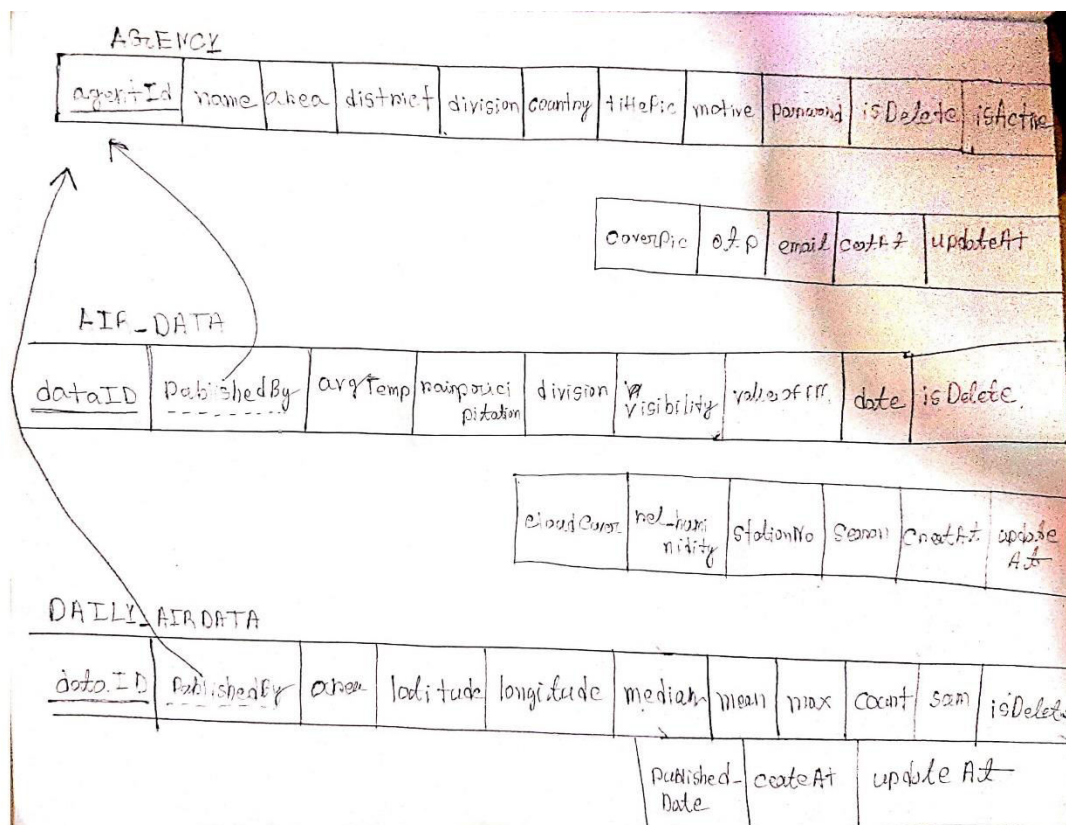 AGENCY
agentId name area district division country titlePic motive password isDelete isActive
coverPic otp email creatAt updateAt
AIR_DATA
dataID PablishedBy avgTemp division visibility date isDelete
pitation
cloudCover rel_humi stationNo Season CreatAt update
nidity At
DAILY_AIRDATA
data.ID PablishedBy area latitude longitude median mean max count sum isDelete
Published_ createAt update At
Date